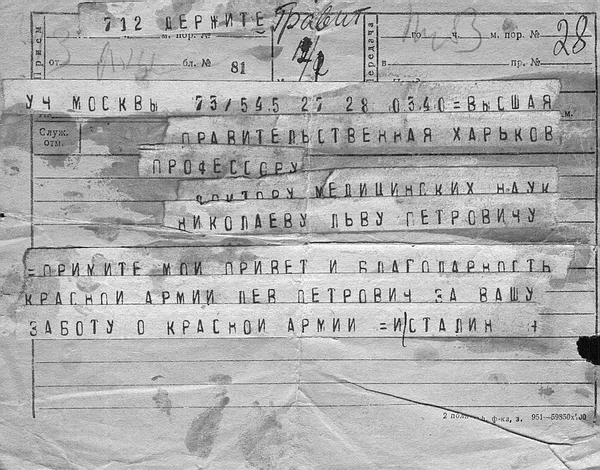 712 ДЕРЖИТЕ Правит
Прием м. пор. № Передача го ч. м. пор. № 28
от бл. № 81 1/2 в пр. №
УЧ МОСКВЫ 73/545 27 28 0340=ВЫСШАЯ
Служ. отм. ПРАВИТЕЛЬСТВЕННАЯ ХАРЬКОВ
ПРОФЕССОРУ
ДОКТОРУ МЕДИЦИНСКИХ НАУК
НИКОЛАЕВУ ЛЬВУ ПЕТРОВИЧУ
=ПРИМИТЕ МОЙ ПРИВЕТ И БЛАГОДАРНОСТЬ
КРАСНОЙ АРМИИ ЛЕВ ПЕТРОВИЧ ЗА ВАШУ
ЗАБОТУ О КРАСНОЙ АРМИИ =И СТАЛИН +
ф-ка, з. 951—59350х100